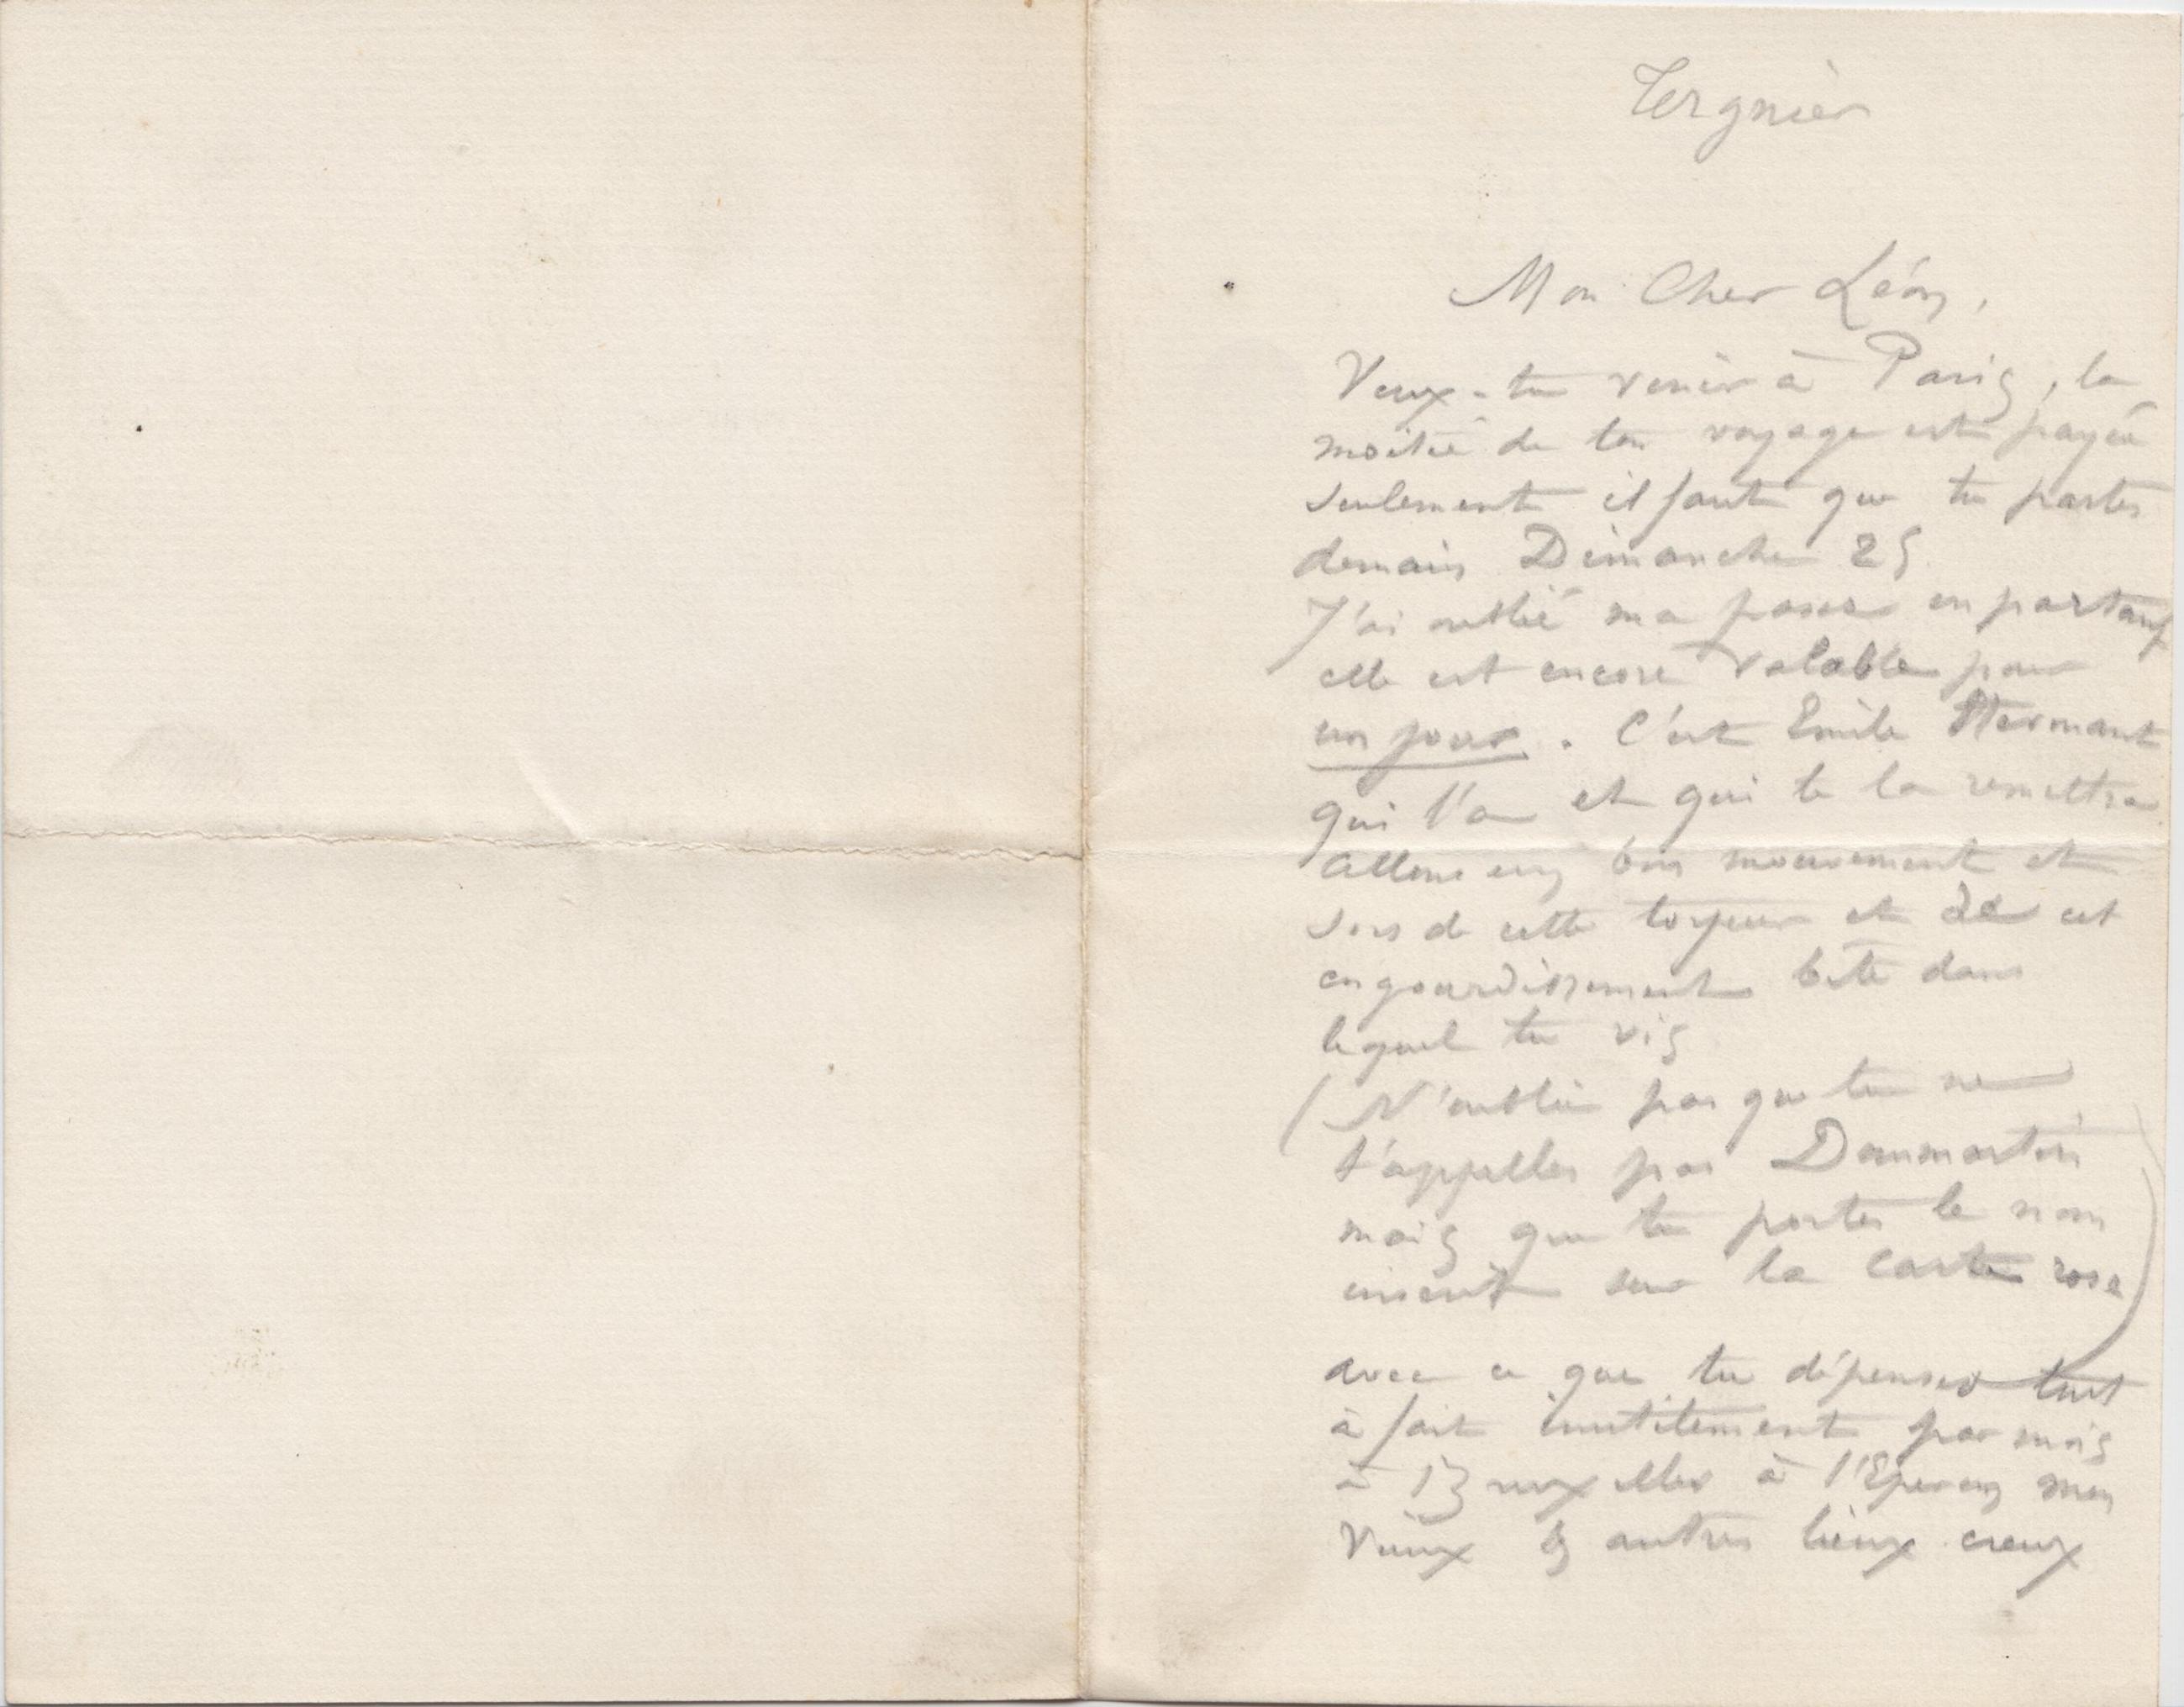 Tergnier
Mon Cher Léon,
Veux-tu venir à Paris, la
moitié de ton voyage est payée
seulement il faut que tu partes
demain Dimanche 25
J'ai oublié ma passe en partant
elle est encore valable pour
un jour. C'est Emile Hermant
qui l'a et qui te la remettra
Allons un bon mouvement et
sors de cette torpeur et de cet
engourdissement bête dans
lequel tu vis
(N'oublie pas que tu ne
t'appelles pas Dommartin
mais que tu portes le nom
inscrit sur la carte rose)
avec ce que tu dépenses tout
à fait inutilement par mois
à Bruxelles à l'Eperon mon
Vieux & autres lieux creux